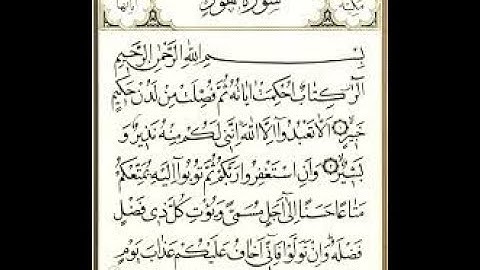 سورة هود
مكية
آياتها
بِسْمِ اللهِ الرَّحْمٰنِ الرَّحِيمِ
الٓرٰ كِتَابٌ اُحْكِمَتْ اٰيَاتُهُ ثُمَّ فُصِّلَتْ مِنْ لَدُنْ حَكِيمٍ
خَبِيرٍ ۝ اَلَّا تَعْبُدُوٓا اِلَّا اللهَ اِنَّنِي لَكُمْ مِنْهُ نَذِيرٌ وَ
بَشِيرٌ ۝ وَاَنِ اسْتَغْفِرُوا رَبَّكُمْ ثُمَّ تُوبُوٓا اِلَيْهِ يُمَتِّعْكُمْ
مَتَاعًا حَسَنًا اِلٰٓى اَجَلٍ مُسَمًّى وَيُؤْتِ كُلَّ ذِي فَضْلٍ
فَضْلَهُ وَاِنْ تَوَلَّوْا فَاِنِّيٓ اَخَافُ عَلَيْكُمْ عَذَابَ يَوْمٍ